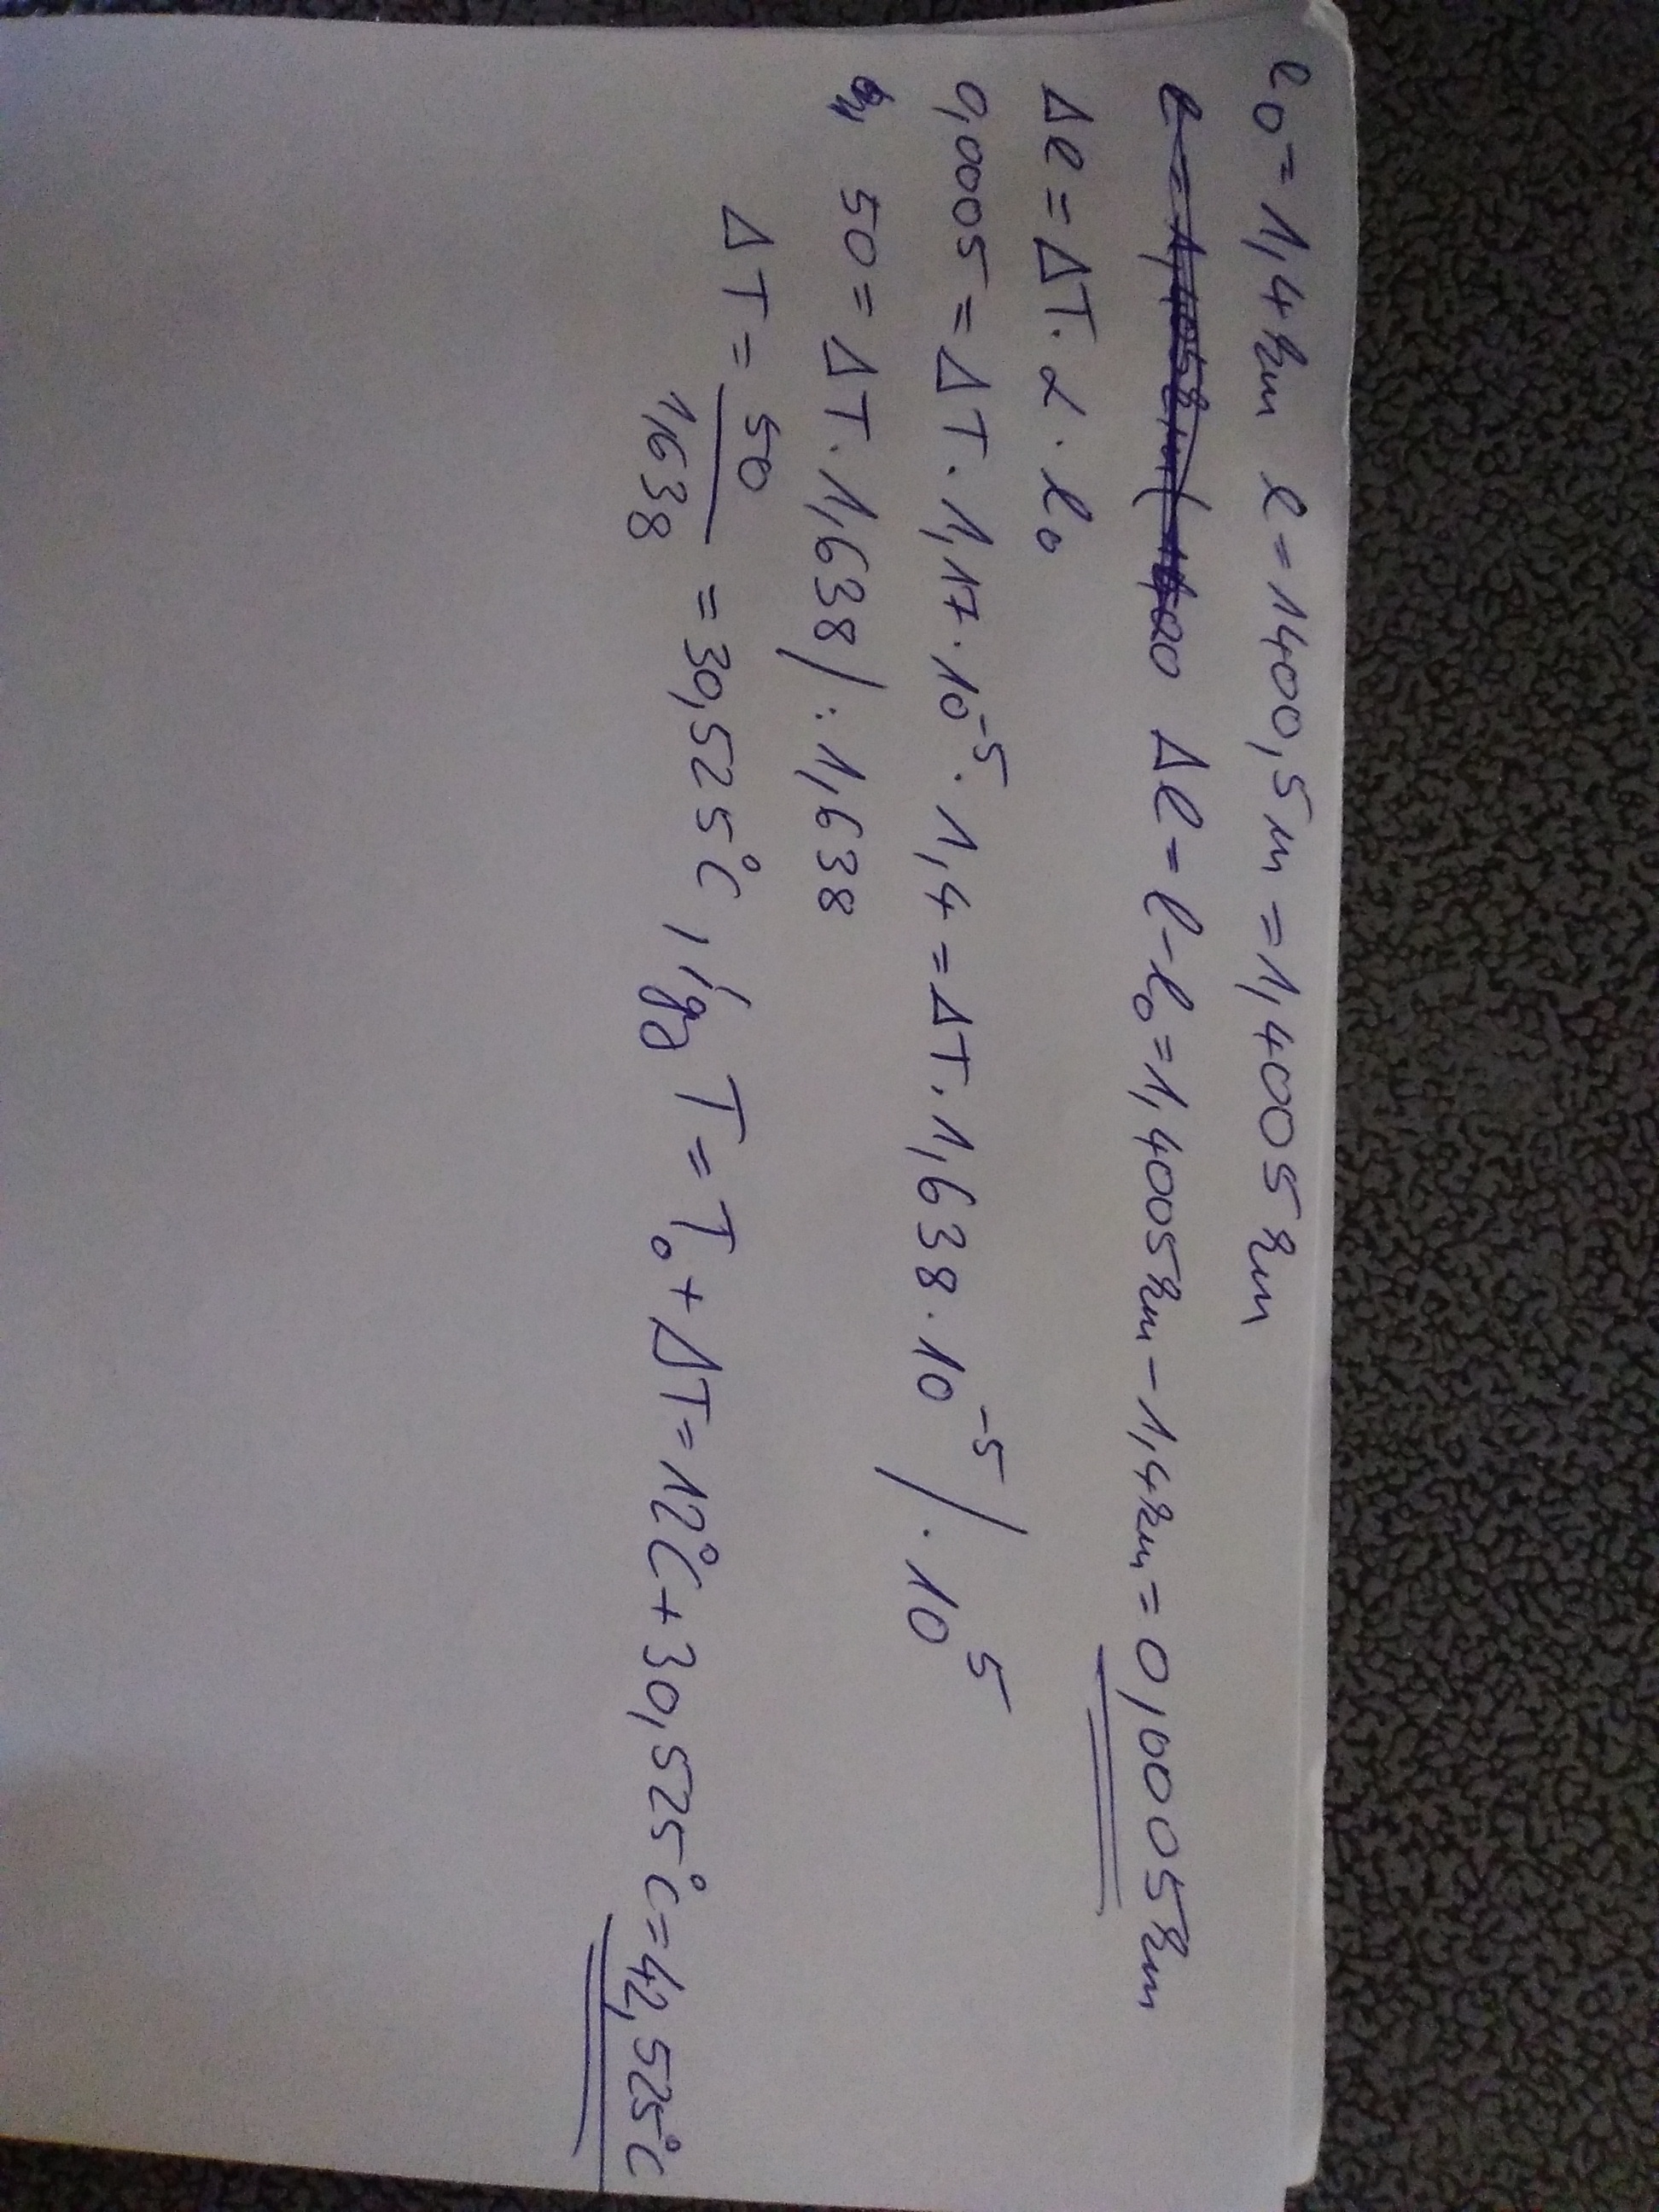 l₀ = 1,4 km l = 1400,5 m = 1,4005 km
Δl = l - l₀ = 1,4005 km - 1,4 km = 0,0005 km
Δl = ΔT · α · l₀
0,0005 = ΔT · 1,17 · 10⁻⁵ · 1,4 = ΔT · 1,638 · 10⁻⁵ / · 10⁵
50 = ΔT · 1,638 / : 1,638
ΔT = 50/1,638 = 30,525°C, így a T = T₀ + ΔT = 12°C + 30,525°C = 42,525°C